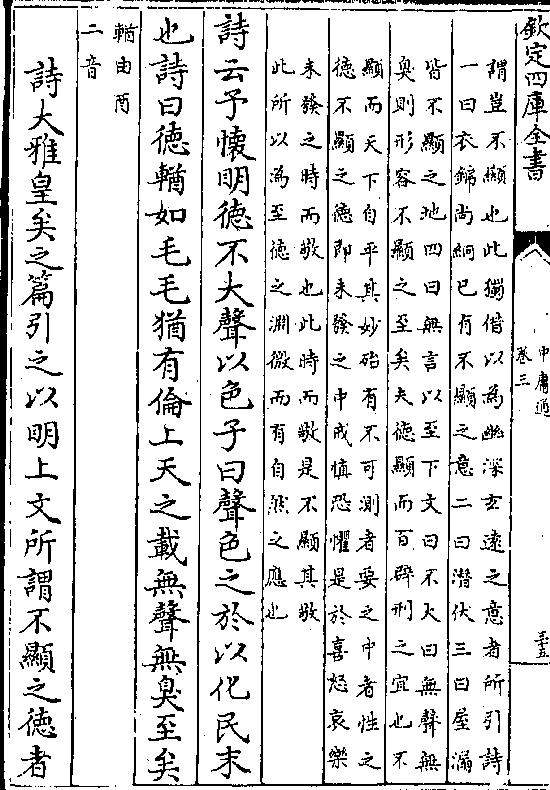 欽定四庫全書
中庸通
卷三
謂豈不顯也此獨借以為幽深玄遠之意者所引詩
一曰衣錦尚絅已有不顯之意二曰潛伏三曰屋漏
皆不顯之地四曰無言以至下文曰不大曰無聲無
臭則形容不顯之至矣夫德顯而百辟刑之宜也不
顯而天下自平其妙殆有不可測者要之中者性之
德不顯之德即未發之中戒慎恐懼是於喜怒哀樂
未發之時而敬也此時而敬是不顯其敬
此所以為至德之淵微而有自然之應也
詩云予懷明德不大聲以色子曰聲色之於以化民末
也詩曰德輶如毛毛猶有倫上天之載無聲無臭至矣
輶由酉
二音
詩大雅皇矣之篇引之以明上文所謂不顯之德者